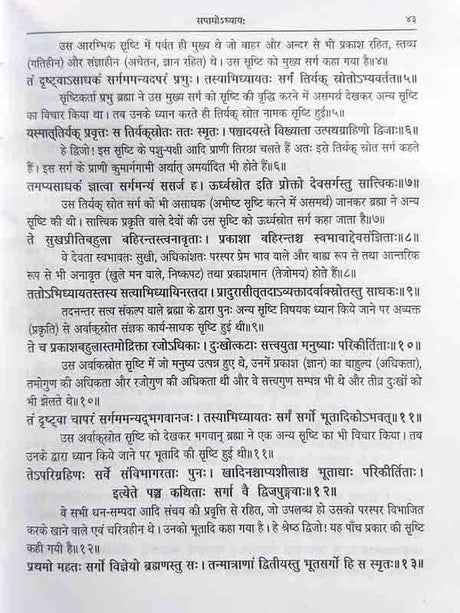 सप्तमोऽध्यायः ४३
उस आरम्भिक सृष्टि में पर्वत ही मुख्य थे जो बाहर और अन्दर से भी प्रकाश रहित, स्तब्ध
(गतिहीन) और संज्ञाहीन (अचेतन, ज्ञान रहित) थे। इसलिये इस सर्ग को मुख्य सर्ग कहा गया है॥४॥
तं दृष्ट्वाऽसाधकं सर्गममन्यदपरं प्रभुः। तस्याभिध्यायतः सर्गं तिर्यक् स्रोतोऽभ्यवर्तत॥५॥
सृष्टिकर्ता प्रभु ब्रह्मा ने उस मुख्य सर्ग को सृष्टि की वृद्धि करने में असमर्थ देखकर अन्य सृष्टि
का विचार किया था। तब उनके ध्यान करते ही तिर्यक् स्रोत नामक सृष्टि हुई॥५॥
यस्मात्तिर्यक् प्रवृत्तः स तिर्यक्स्रोतः ततः स्मृतः। पश्वादयस्ते विख्याता उत्पथग्राहिणो द्विजाः॥६॥
हे द्विजो! इस सृष्टि के पशु-पक्षी आदि प्राणी तिरछा चलते हैं अतः इसे तिर्यक् स्रोत सर्ग कहते
हैं। इस सर्ग के प्राणी कुमार्गगामी अर्थात् अमर्यादित भी होते हैं॥६॥
तमप्यसाधकं ज्ञात्वा सर्गमन्यं ससर्ज ह। ऊर्ध्वस्रोत इति प्रोक्तो देवसर्गस्तु सात्त्विकः॥७॥
उस तिर्यक् स्रोत सर्ग को भी असाधक (अभीष्ट सृष्टि करने में असमर्थ) जानकर ब्रह्मा ने अन्य
सृष्टि की थी। सात्त्विक प्रकृति वाले देवों की उस सृष्टि को ऊर्ध्वस्रोत सर्ग कहा जाता है॥७॥
ते सुखप्रीतिबहुला बहिरन्तस्त्वनावृताः। प्रकाशा बहिरन्तश्च स्वभावाद्देवसंज्ञिताः॥८॥
वे देवता स्वभावतः सुखी, अधिकांशतः परस्पर प्रेम भाव वाले और बाह्य रूप से तथा आन्तरिक
रूप से भी अनावृत (खुले मन वाले, निष्कपट) तथा प्रकाशमान (तेजोमय) होते हैं॥८॥
ततोऽभिध्यायतस्तस्य सत्याभिध्यायिनस्तदा। प्रादुरासीत्तदाऽव्यक्तादर्वाक्स्रोतस्तु साधकः॥९॥
तदनन्तर सत्य संकल्प वाले ब्रह्मा के द्वारा पुनः अन्य सृष्टि विषयक ध्यान किये जाने पर अव्यक्त
(प्रकृति) से अर्वाक्स्रोत संज्ञक कार्य-साधक सृष्टि हुई थी॥९॥
ते च प्रकाशबहुलास्तमोद्रिक्ता रजोऽधिकाः। दुःखोत्कटाः सत्त्वयुता मनुष्याः परिकीर्तिताः॥१०॥
उस अर्वाक्स्रोत सृष्टि में जो मनुष्य उत्पन्न हुए थे, उनमें प्रकाश (ज्ञान) का बाहुल्य (अधिकता),
तमोगुण की अधिकता और रजोगुण की अधिकता थी और वे सत्त्वगुण सम्पन्न भी थे और तीव्र दुःखों को
भी झेलते थे॥१०॥
तं दृष्ट्वा चापरं सर्गममन्यद्भगवानजः। तस्याभिध्यायतः सर्गं सर्गो भूतादिकोऽभवत्॥११॥
उस अर्वाक्स्रोत सृष्टि को देखकर भगवान् ब्रह्मा ने एक अन्य सृष्टि का भी विचार किया। तब
उनके द्वारा ध्यान किये जाने पर भूतादि की सृष्टि हुई थी॥११॥
तेऽपरिग्रहिणः सर्वे संविभागरताः पुनः। खादिनश्चाप्यशीलाश्च भूताद्याः परिकीर्तिताः।
इत्येते पञ्च कथिताः सर्गा वै द्विजपुङ्गवाः॥१२॥
वे सभी धन-सम्पदा आदि संचय की प्रवृत्ति से रहित, जो उपलब्ध हो उसको परस्पर विभाजित
करके खाने वाले एवं चरित्रहीन थे। उनको भूतादि कहा गया है। हे श्रेष्ठ द्विजो! यह पाँच प्रकार की सृष्टि
कही गयी है॥१२॥
प्रथमो महतः सर्गो विज्ञेयो ब्रह्मणस्तु सः। तन्मात्राणां द्वितीयस्तु भूतसर्गो हि स स्मृतः॥१३॥